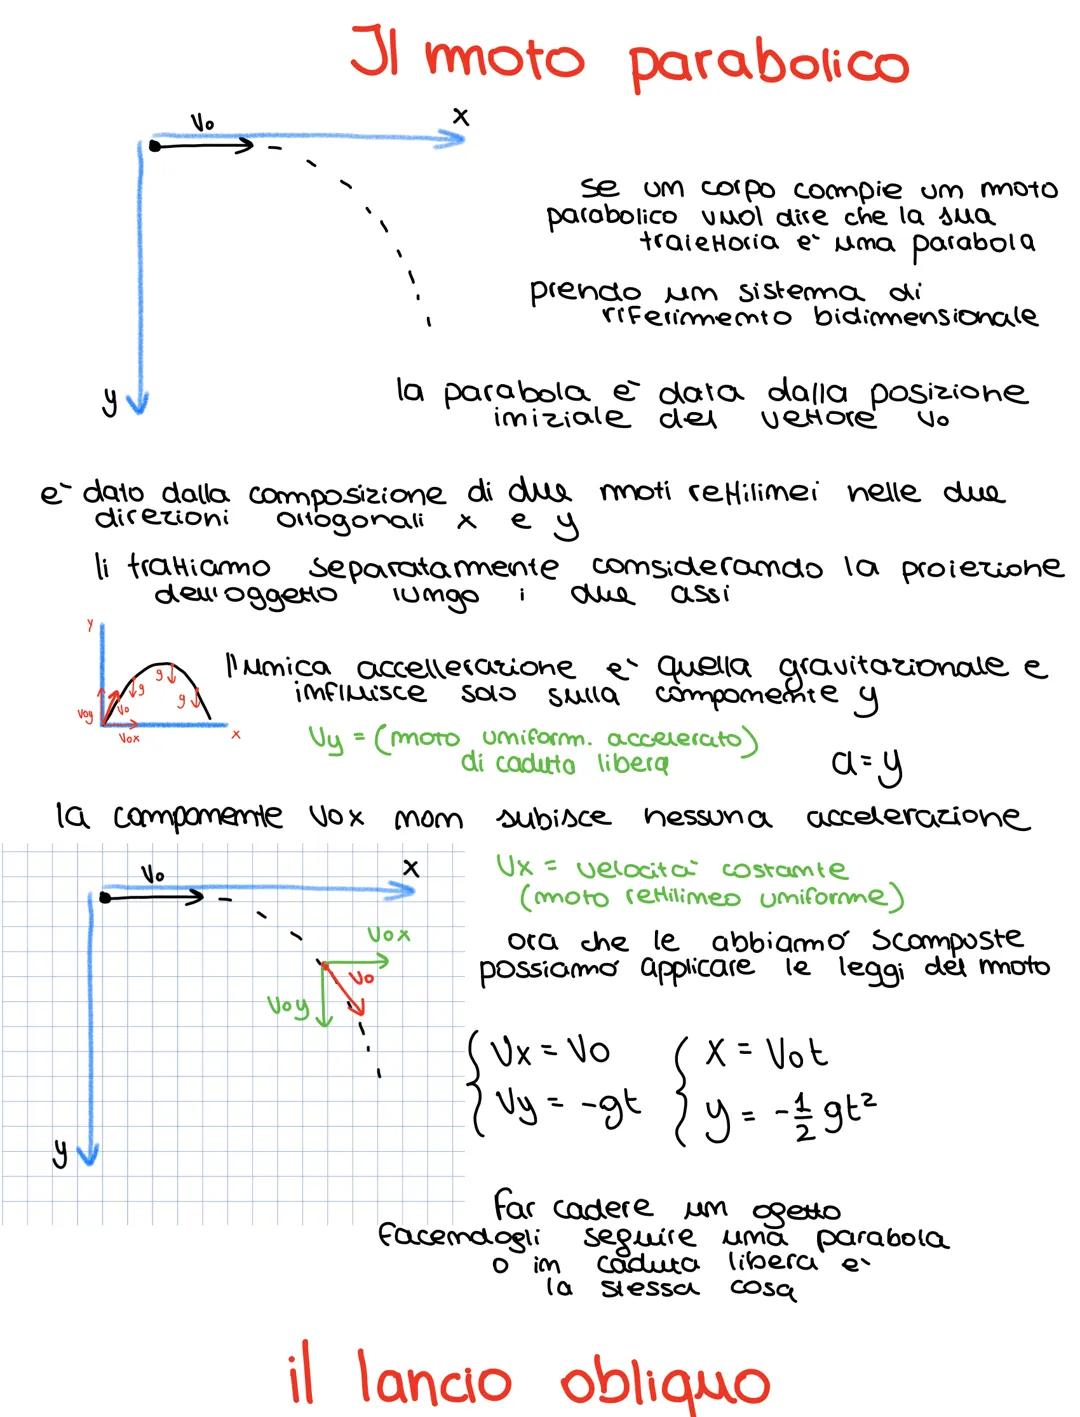 Il moto parabolico
V₀ x
se un corpo compie un moto
parabolico vuol dire che la sua
traiettoria e` una parabola
prendo un sistema di
riferimento bidimensionale
y
la parabola e` data dalla posizione
iniziale del vettore V₀
e` dato dalla composizione di due moti rettilinei nelle due
direzioni ortogonali x e y
li trattiamo separatamente considerando la proiezione
dell'oggetto lungo i due assi
y
g g g
V₀y V₀
V₀x x
l'unica accellerazione e` quella gravitazionale e
influisce solo sulla componente y
Vy = (moto uniform. accelerato)
di caduta libera
a=y
la componente V₀x non subisce nessuna accelerazione
V₀ x
Vx = velocita` costante
(moto rettilineo uniforme)
V₀x
V₀
V₀y
y
ora che le abbiamo scomposte
possiamo applicare le leggi del moto
Vx = V₀ x = V₀t
Vy = -gt y = -½ gt²
far cadere un ogetto
facendogli seguire una parabola
o in caduta libera e`
la stessa cosa
il lancio obliquo